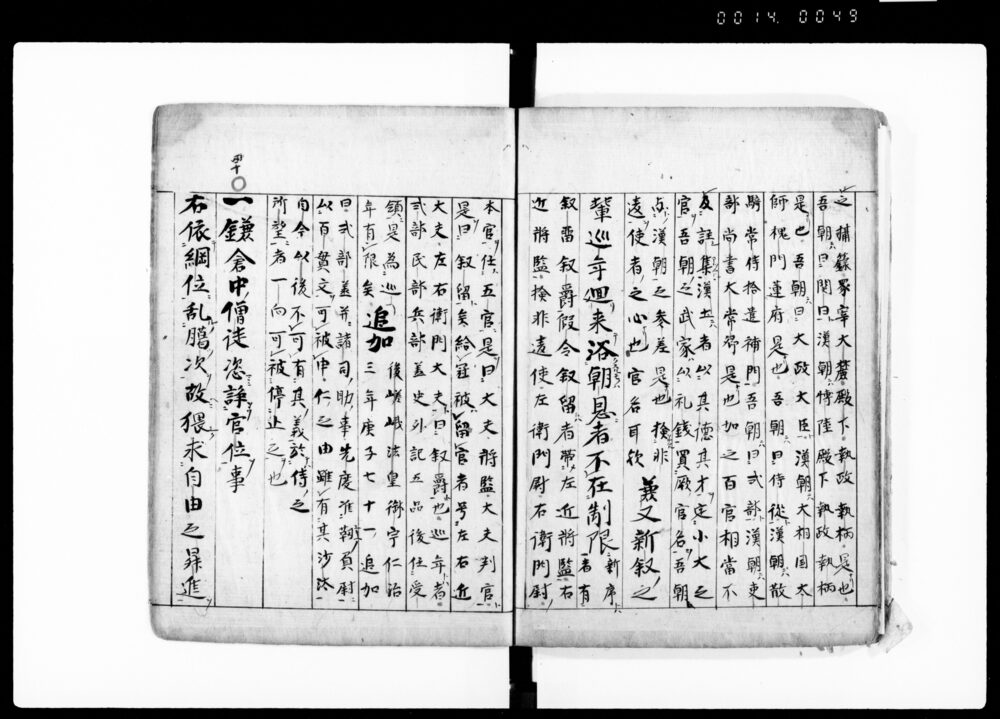 0014.0049
之補錄冢宰大麓殿下執政執柄是也
吾朝曰関曰漢朝侍陸殿下執政執柄
是也吾朝曰大政大臣漢朝大相国太
師槐門蓮府是也吾朝曰侍從漢朝散
騎常侍拾遺補門吾朝曰式部漢朝吏
部尚書大常卿是也加之百官相當不
及註集漢土者以其德其才定小大之
官吾朝之武家以礼錢買厥官名吾朝
与漢朝之参差是也掾非
遠使者之心也官名耳欤 義又新叙之
輩巡年廻来浴朝恩者不在制限 新序者有
叙畄叙爵假令叙留者帶左近將監右
近將監掾非遠使左衛門尉右衛門尉
本官任五官是曰大夫將監大夫判官
是曰叙留矣給冠被留官者号左右近
大夫左右衛門大夫曰叙爵也巡年者
式部民部兵部盖史外記五品後任受
領是為巡 追加 後嵯峨法皇御宇仁治
年有限矣 三年庚子七十一追加
曰式部盖并諸司助事先度准靱負尉
以百貫文可被申仁之由雖有其沙汰
自今以後不可有其義於侍之
所望者一向可被停止之也
四十
一鎌倉中僧徒恣諍官位事
右依綱位乱臈次故猥求自由之昇進